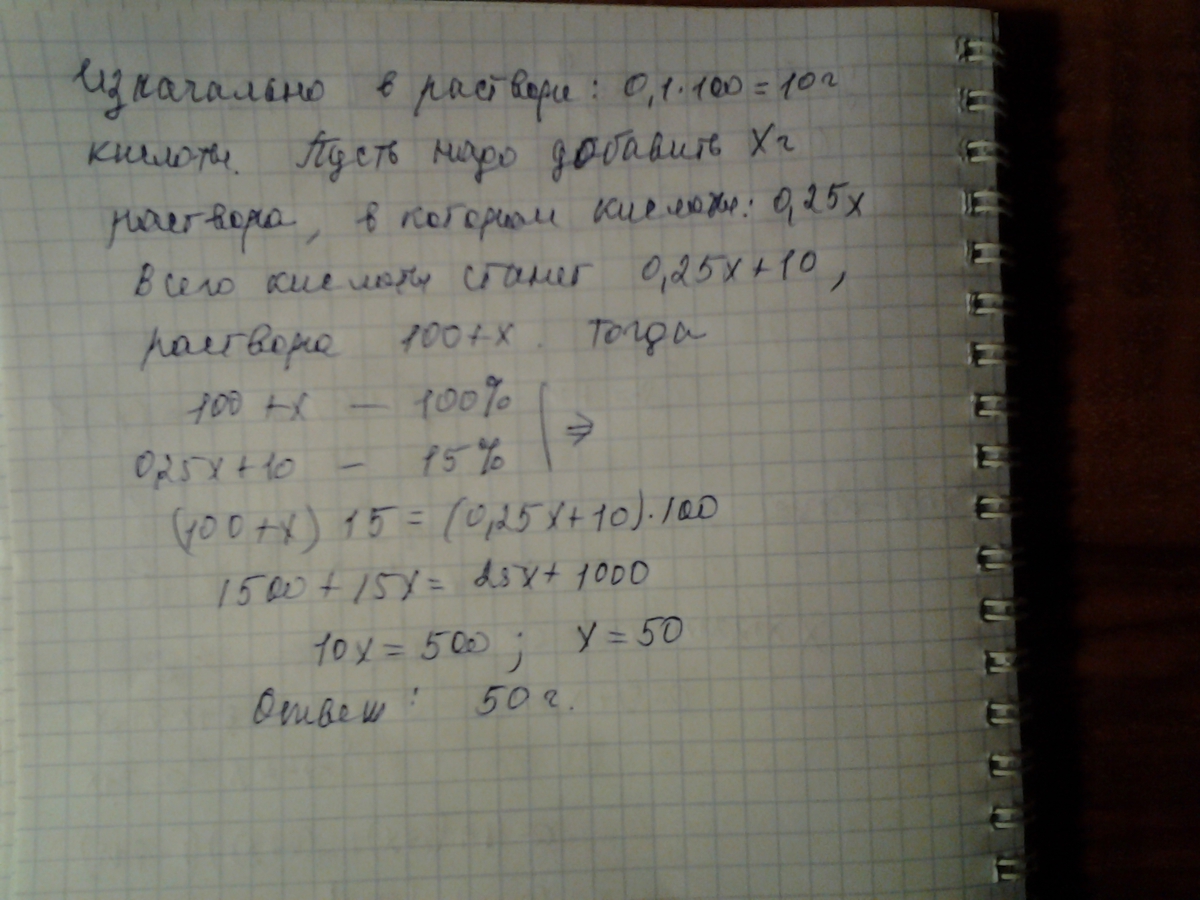 Изначально в растворе: 0,1·100=10г
кислоты. Пусть надо добавить Xг
раствора, в котором кислоты: 0,25x
Всего кислоты станет 0,25x+10,
раствора 100+x. Тогда
100+x — 100%
0,25x+10 — 15% ⇒
(100+x) 15 = (0,25x+10)·100
1500+15x= 25x+1000
10x=500; x=50
Ответ: 50г.